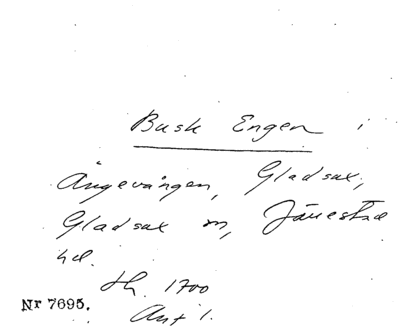 Busk Engen i
Ängevången, Gladsax,
Gladsax sn, Järrestad
hd.
Lh. 1700
Ant 1.
Nr 7695.